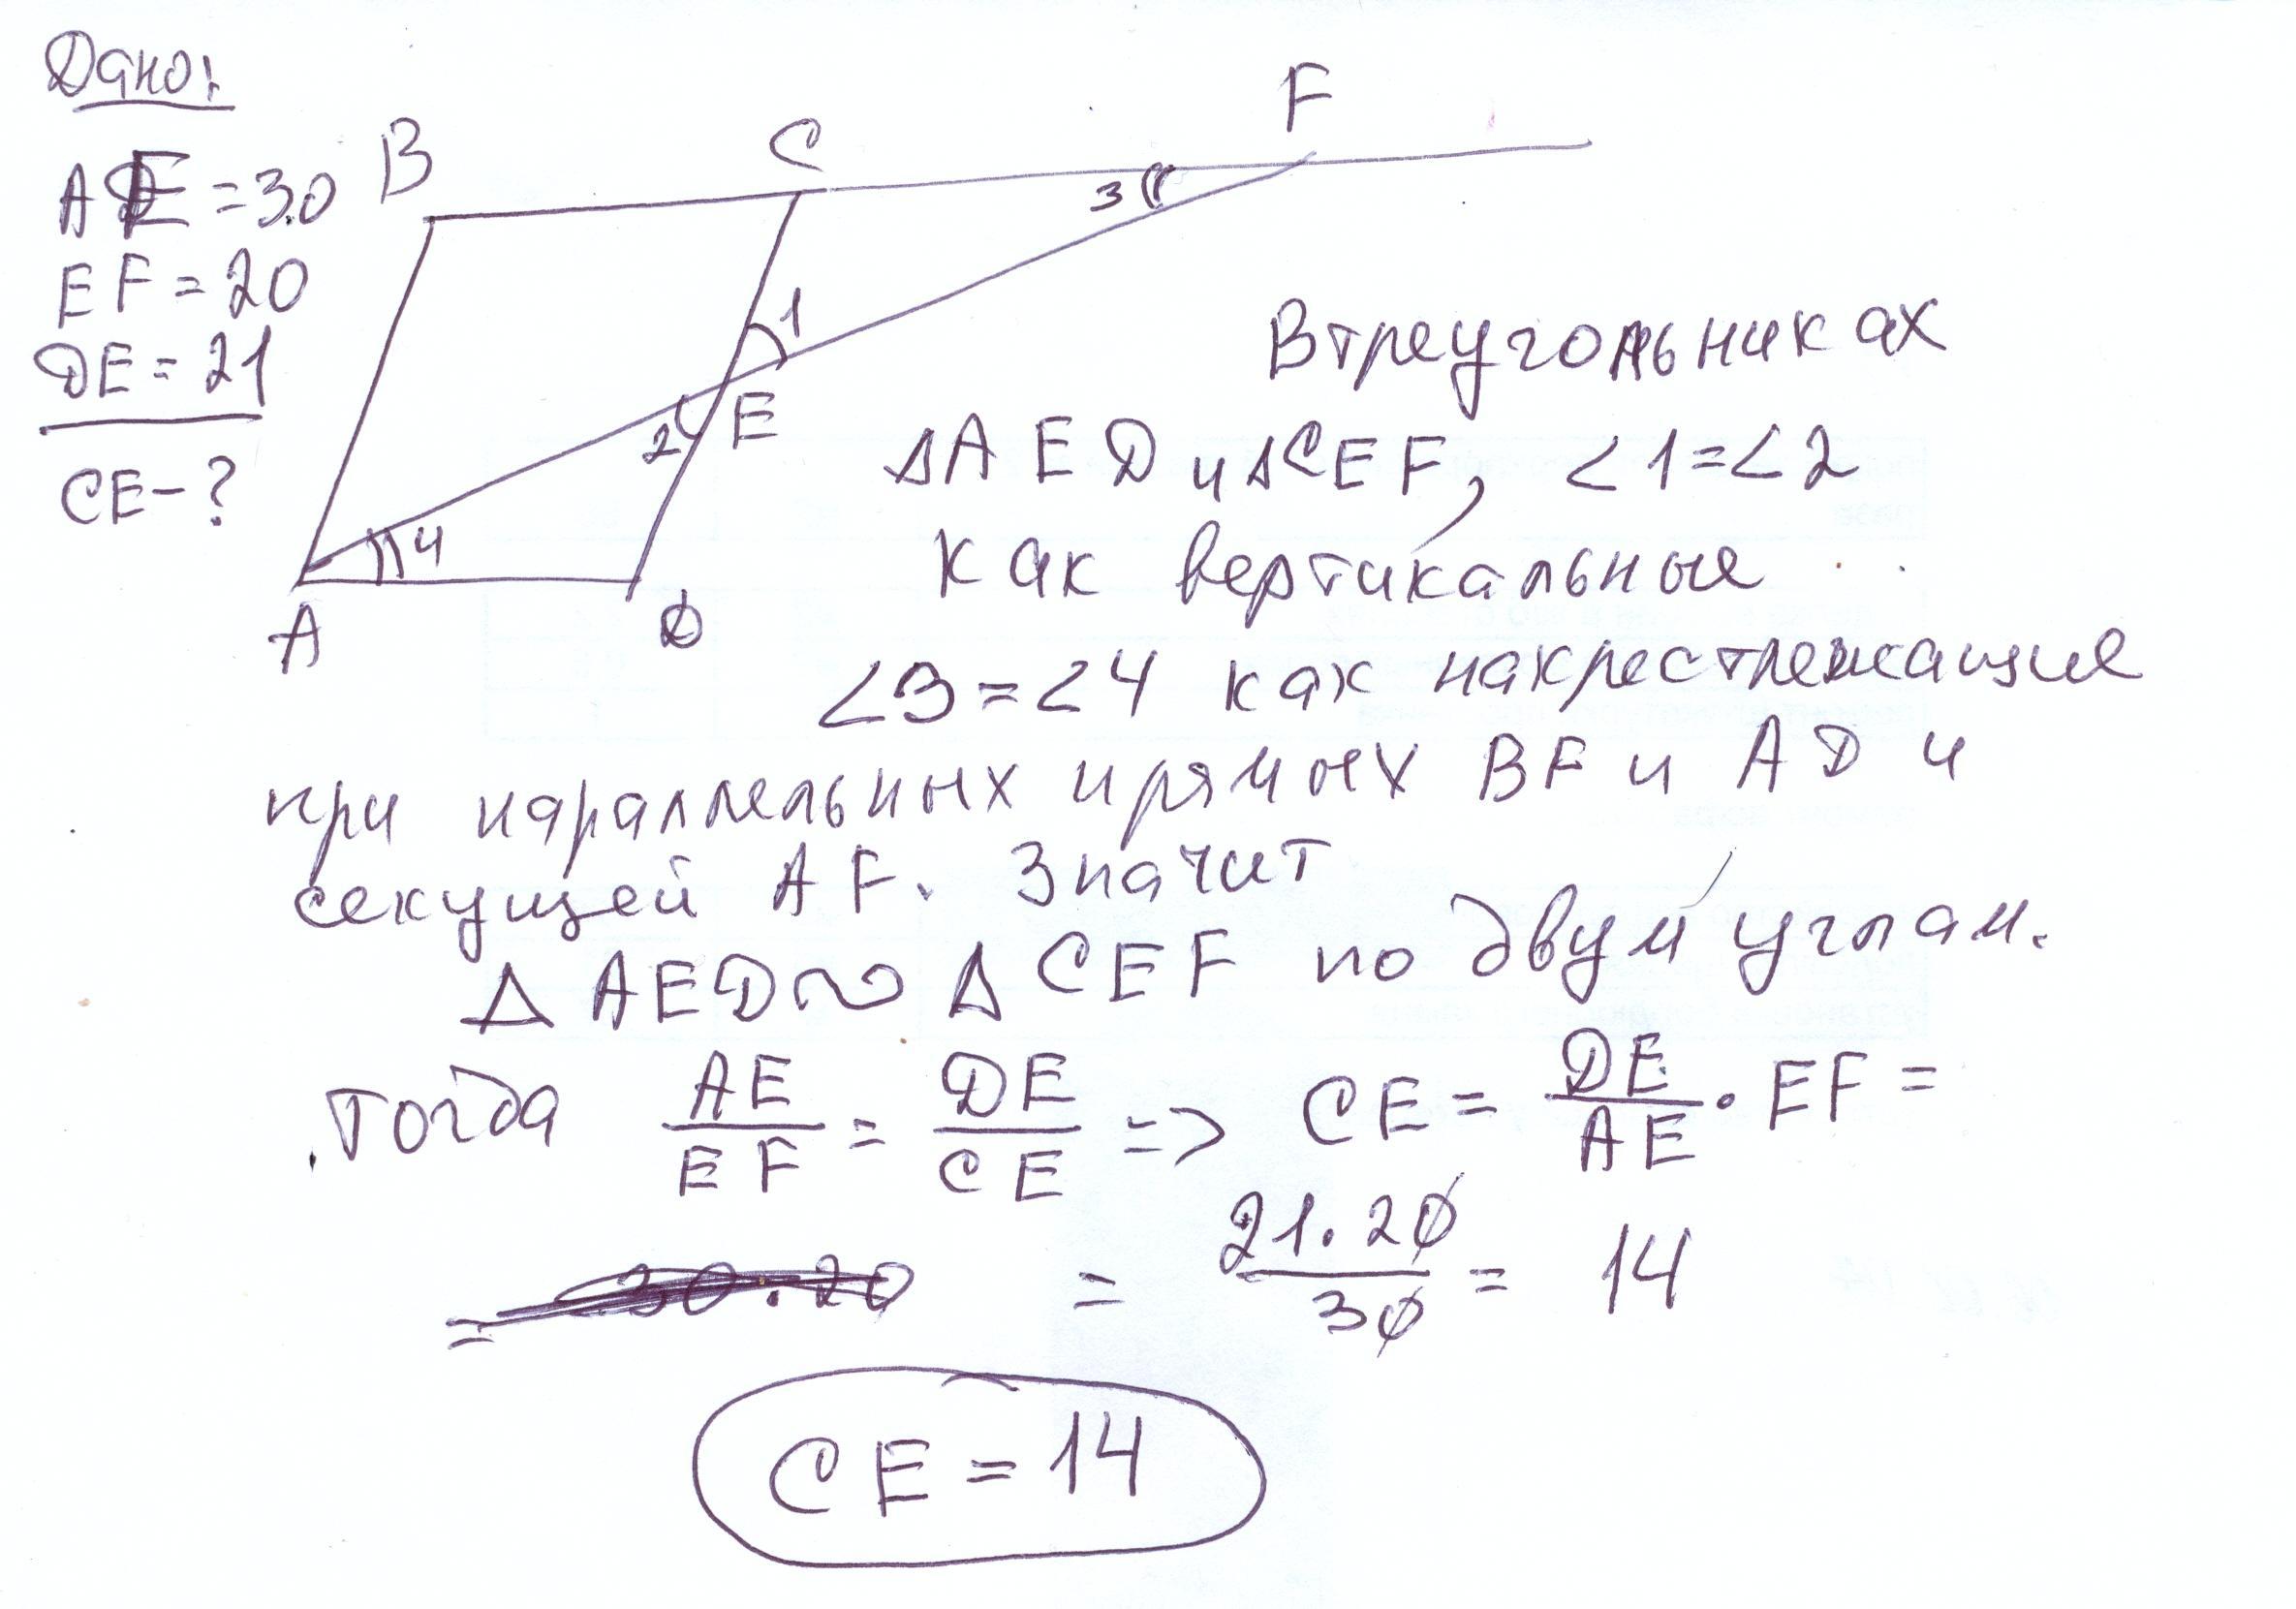 Дано:
AE = 30
EF = 20
DE = 21
CE - ?
B
C
F
3
1
E
2
4
A
D
В треугольниках
ΔAED и ΔCEF, ∠1 = ∠2
как вертикальные
∠3 = ∠4 как накрестлежащие
при параллельных прямых BF и AD и
секущей AF. Значит
Δ AED ∼ Δ CEF по двум углам.
Тогда AE/EF = DE/CE => CE = DE/AE · EF =
= 30 · 20 = 21·20/30 = 14
CE = 14